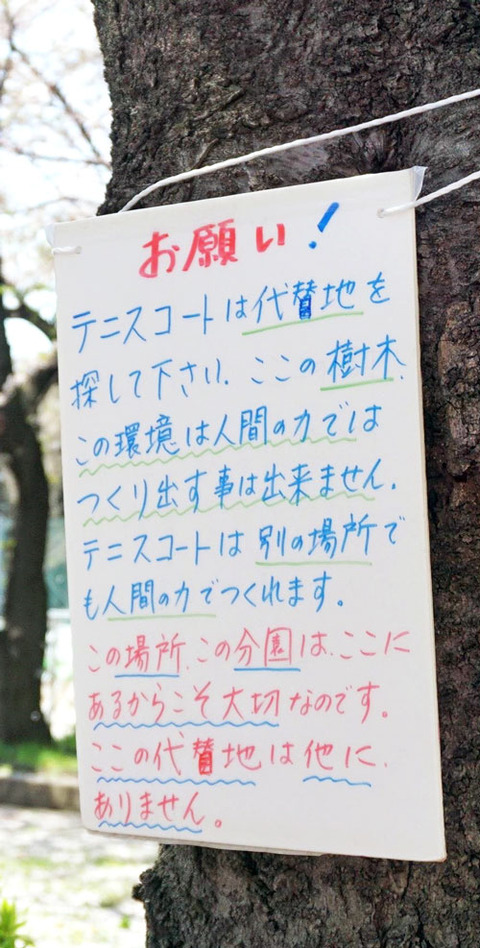 お願い!
テニスコートは代替地を
探して下さい、ここの樹木、
この環境は人間の力では
つくり出す事は出来ません。
テニスコートは別の場所で
も人間の力でつくれます。
この場所、この分園は、ここに
あるからこそ大切なのです。
ここの代替地は他に、
ありません。